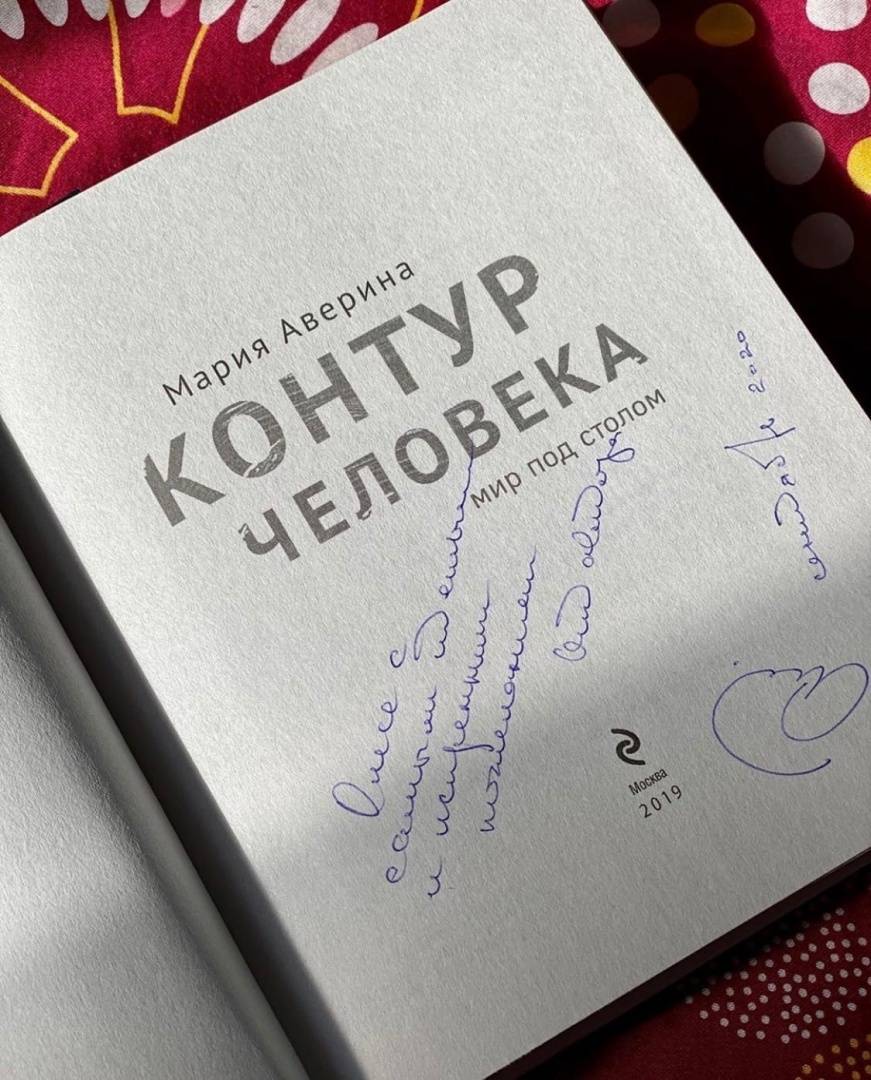 Мария Аверина
КОНТУР
ЧЕЛОВЕКА
мир под столом
Олесе с
самыми тёплыми
и искренними
пожеланиями
От автора
октябрь 2020
Москва
2019